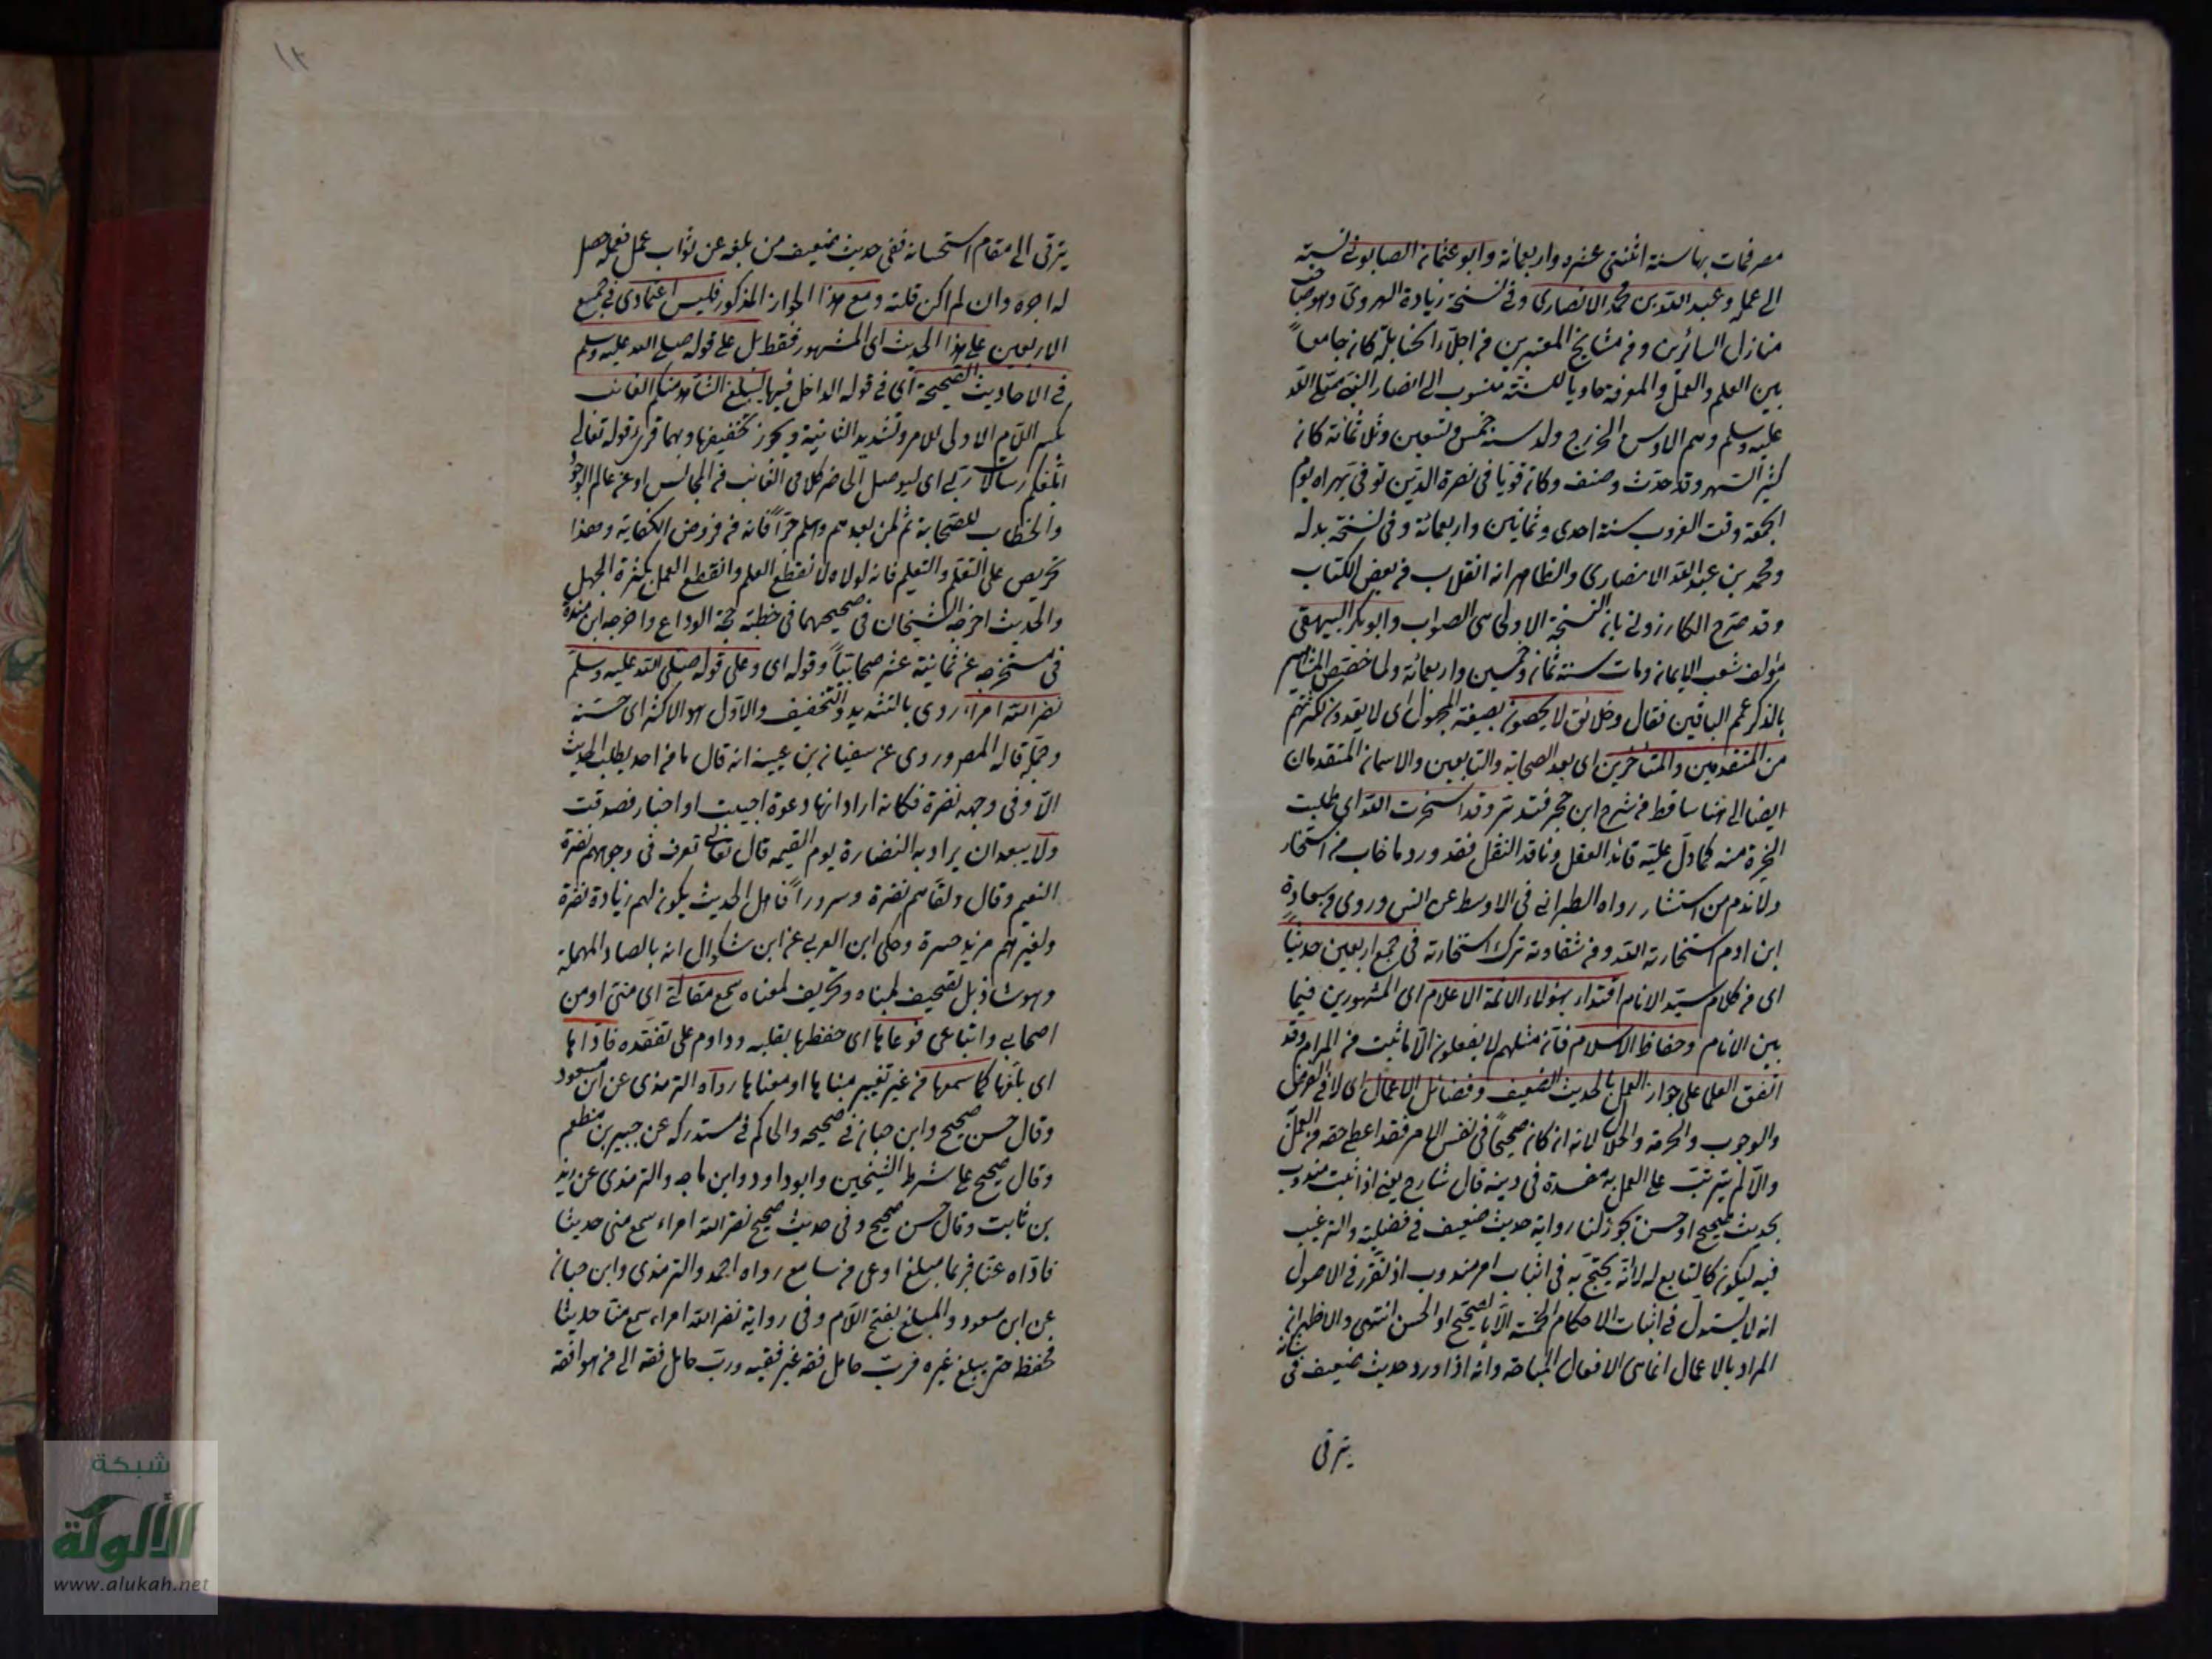 مصر فمات بها سنة اثنتى عشره واربعمائة وابو عثمان الصابونى نسبة
الى عمله وعبد الله بن محمد الانصارى وفى نسخة زيادة الهروى وهو صاحب
منازل السائرين وفى مشايخ المعتبرين من اجلاء الحنابلة كان جامعاً
بين العلم والعمل والمعرفة حاويا للسنة منسوب الى انصار النبى صلى الله
عليه وسلم وهم الاوس والخزرج ولد سنة خمس وتسعين وثلاثمائة كان
كثير السهر وقد حدث وصنف وكان قويا فى نصرة الدين توفى بهراه يوم
الجمعة وقت الغروب سنة احدى وثمانين واربعمائة وفى نسخة بدله
ومحمد بن عبد الله الانصارى والظاهر انه انقلاب من بعض الكتاب
وقد صرح الكازرونى بان النسخة الاولى هى الصواب وابو بكر البيهقى
مؤلف شعب الايمان ومات سنة ثمان وخمسين واربعمائة ولما خصص المشاهير
بالذكر عمم الباقين فقال وخلائق لا يحصون بصيغة المجهول اى لا يعدون لكثرتهم
من المتقدمين والمتاخرين اى بعد الصحابة والتابعين والاسمان المتقدمان
ايضا الى هنا ساقط من شرح ابن حجر فتدبر وقد استخرت الله اى طلبت
الخيرة منه كما دل عليه قائد العقل وناقد النقل فقد ورد ما خاب من استخار
ولا ندم من استشار رواه الطبرانى فى الاوسط عن انس وروى من سعادة
ابن ادم استخارته الله ومن شقاوته تركه استخارته فى جمع اربعين حديثاً
اى من كلام سيد الانام اقتداء بهؤلاء الائمة الاعلام اى المشهورين فيما
بين الانام وحفاظ الاسلام فان مثلهم لا يفعلون الا ما ثبت من المرام وقد
اتفق العلما على جواز العمل بالحديث الضعيف وفضائل الاعمال اى لا فى الفرض
والوجوب والحرمة والحلال لانه ان كان صحيحاً فى نفس الامر فقد اعطى حقه من العمل
والا لم يترتب على العمل به مفسدة فى دينه قال شارح يعنى اذا ثبت مندوب
بحديث صحيح او حسن تجوز لنا رواية حديث ضعيف فى فضيلته والترغيب
فيه ليكون كالتابع له لا انه يحتج به فى اثبات امر مندوب اذ تقرر فى الاصول
انه لا يستدل فى اثبات الاحكام الخمسة الا بالصحيح او الحسن انتهى والاظهر ان
المراد بالاعمال انما هى الافعال المباحة وانه اذا ورد حديث ضعيف فى
يترقى
١٢
يترقى الى مقام استحسانه ففى حديث ضعيف من بلغه عن ثواب عمل فعمله حصل
له اجره وان لم اكن قلته ومع هذا الجواز المذكور فليس اعتمادى فى جميع
الاربعين على هذا الحديث اى المشهور فقط بل على قوله صلى الله عليه وسلم
فى الاحاديث الصحيحة اى فى قوله الداخل فيها ليبلغ الشاهد منكم الغائب
بكسر اللام الاولى للامر وتشديد الثانية ويجوز تخفيفها وبهما قرئ قوله تعالى
ابلغكم رسالات ربى اى ليوصل الحاضر كلامى الغائب من المجالس او عن عالم الوجود
والخطاب للصحابة ثم لمن بعدهم وهلم جراً فانه من فروض الكفاية وهذا
تحريص على التعلم والتعليم فانه لولاه لانقطع العلم وانقطع العمل بكثرة الجهل
والحديث اخرجه الشيخان فى صحيحهما فى خطبة حجة الوداع واخرجه ابن مندة
فى مستخرجه عن ثمانية عشر صحابيا وقوله اى وعلى قوله صلى الله عليه وسلم
نضر الله امراء روى بالتشديد والتخفيف والاول هو الاكثر اى حسنه
وجمله قاله المصر وروى عن سفيان بن عيينة انه قال ما من احد يطلب الحديث
الا وفى وجهه نضرة فكانه اراد انها دعوة اجيبت او اخبار فصدقت
ولا يبعد ان يراد به النضارة يوم القيمه قال تعالى تعرف فى وجوههم نضرة
النعيم وقال ولقاهم نضرة وسروراً فاهل الحديث يكون لهم زيادة نضرة
ولغيرهم مزيد حسرة وحكى ابن العربى عن ابن بشكوال انه بالصاد المهملة
وهو شاذ بل تصحيف لمبناه وتحريف لمعناه سمع مقالتى اى منى او من
اصحابى واتباعى فوعاها اى حفظها بقلبه وداوم على تفقده فاداها
اى بلغها كما سمعها من غير تغيير مبناها او معناها رواه الترمذى عن ابن مسعود
وقال حسن صحيح وابن حبان فى صحيحه والحاكم فى مستدركه عن جبير بن مطعم
وقال صحيح على شرط الشيخين وابو داود وابن ماجه والترمذى عن زيد
بن ثابت وقال حسن صحيح وفى حديث صحيح نضر الله امراء سمع منى حديثا
فاداه عنا فربما مبلغ اوعى من سامع رواه احمد والترمذى وابن حبان
عن ابن مسعود والمبلغ بفتح اللام وفى رواية نضر الله امراء سمع منا حديثا
فحفظه حتى يبلغ غيره فرب حامل فقه غير فقيه ورب حامل فقه الى من هو افقه
شبكة
الألوكة
www.alukah.net